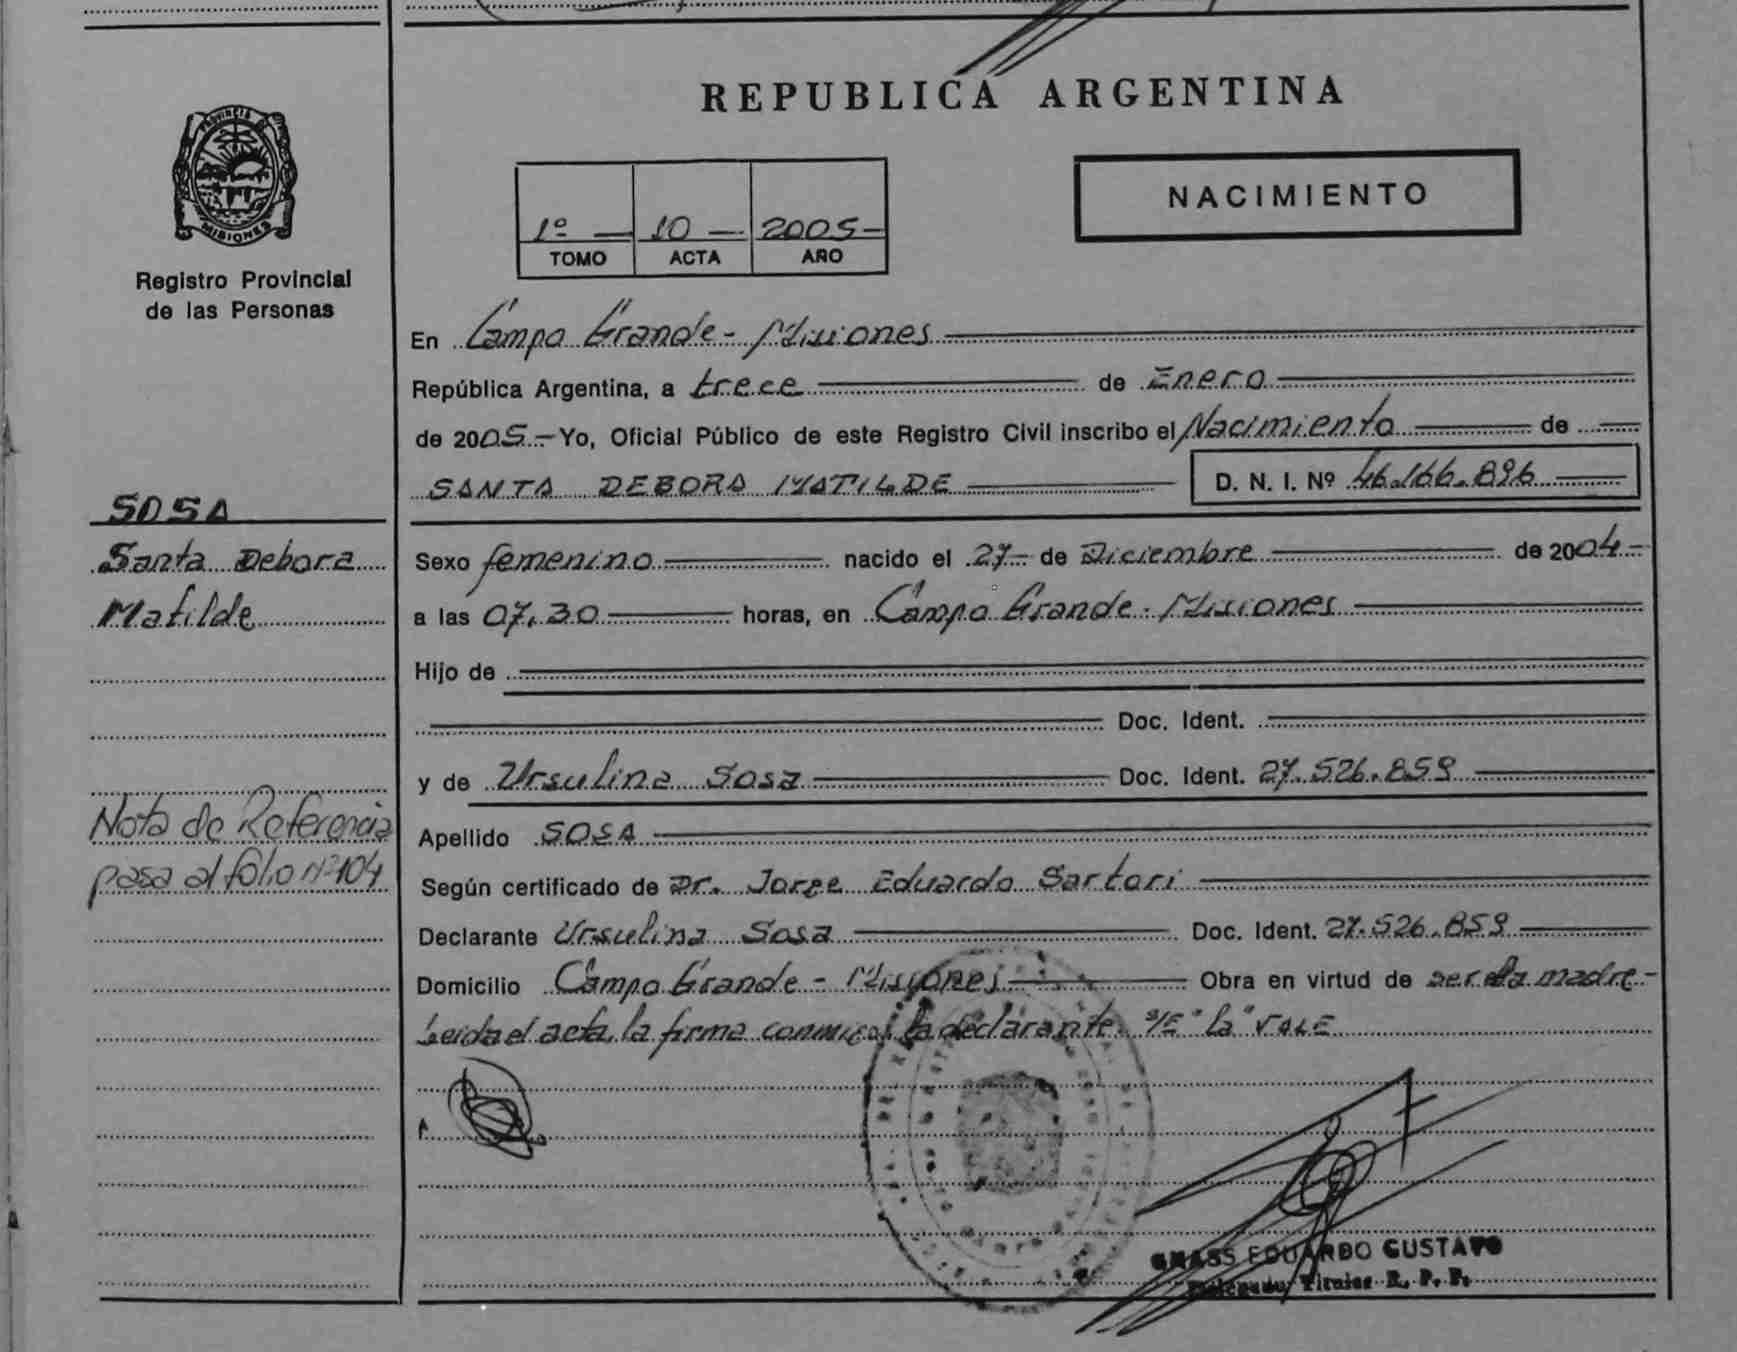 REPUBLICA ARGENTINA
PROVINCIA DE
MISIONES
Registro Provincial
de las Personas
1º — 10 — 2005 —
TOMO ACTA AÑO
NACIMIENTO
En Campo Grande - Misiones
República Argentina, a trece de Enero
de 2005.- Yo, Oficial Público de este Registro Civil inscribo el Nacimiento de
SANTA DEBORA MATILDE D. N. I. Nº 46.166.896
SOSA
Santa Debora
Matilde
Sexo femenino nacido el 27- de Diciembre de 2004-
a las 07,30 horas, en Campo Grande - Misiones
Hijo de
Doc. Ident.
y de Ursulina Sosa Doc. Ident. 27.526.859
Nota de Referencia
pasa al folio Nº 104
Apellido SOSA
Según certificado de Dr. Jorge Eduardo Sartori
Declarante Ursulina Sosa Doc. Ident. 27.526.859
Domicilio Campo Grande - Misiones Obra en virtud de ser la madre-
Leida el acta, la firma conmigo la declarante. S/E "la" VALE
GUSTAVO
Titular R. P. P.